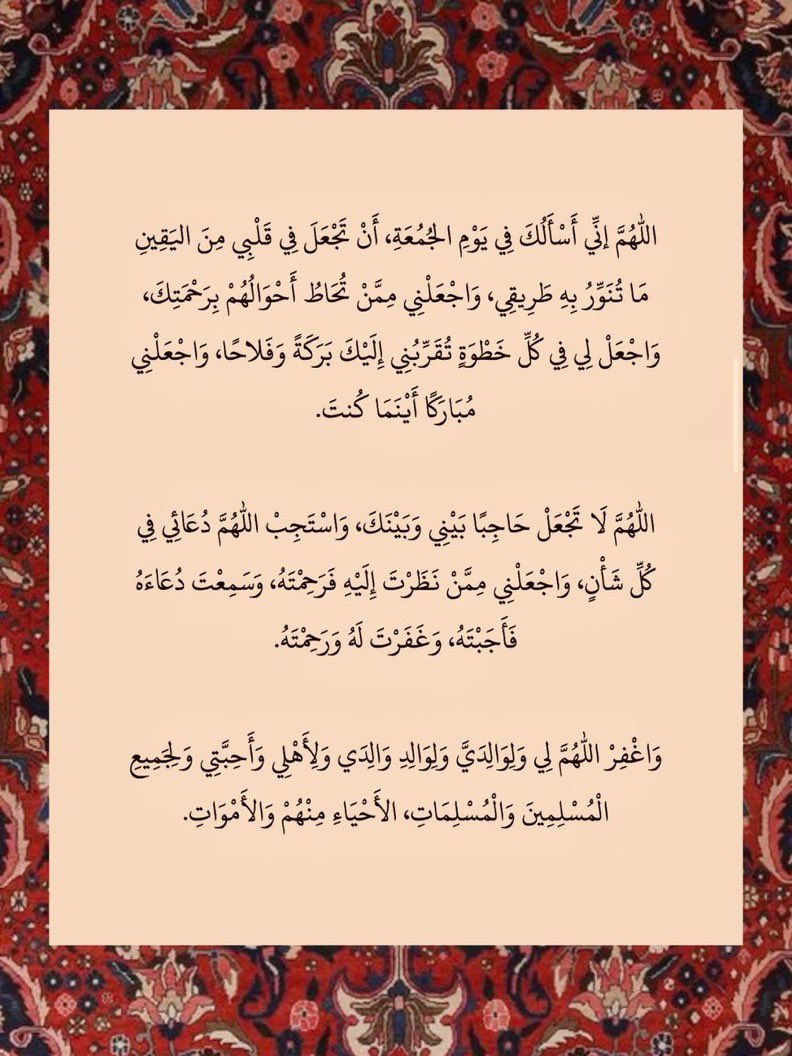 اللَّهُمَّ إِنِّي أَسْأَلُكَ فِي يَوْمِ الجُمُعَةِ، أَنْ تَجْعَلَ فِي قَلْبِي مِنَ اليَقِينِ
مَا تُنَوِّرُ بِهِ طَرِيقِي، وَاجْعَلْنِي مِمَّنْ تُحَاطُ أَحْوَالُهُمْ بِرَحْمَتِكَ،
وَاجْعَلْ لِي فِي كُلِّ خَطْوَةٍ تُقَرِّبُنِي إِلَيْكَ بَرَكَةً وَفَلَاحًا، وَاجْعَلْنِي
مُبَارَكًا أَيْنَمَا كُنتَ.
اللَّهُمَّ لَا تَجْعَلْ حَاجِبًا بَيْنِي وَبَيْنَكَ، وَاسْتَجِبْ اللَّهُمَّ دُعَائِي فِي
كُلِّ شَأْنٍ، وَاجْعَلْنِي مِمَّنْ نَظَرْتَ إِلَيْهِ فَرَحِمْتَهُ، وَسَمِعْتَ دُعَاءَهُ
فَأَجَبْتَهُ، وَغَفَرْتَ لَهُ وَرَحِمْتَهُ.
وَاغْفِرْ اللَّهُمَّ لِي وَلِوَالِدَيَّ وَلِوَالِدِ وَالِدَي وَلِأَهْلِي وَأَحِبَّتِي وَلِجَمِيعِ
الْمُسْلِمِينَ وَالْمُسْلِمَاتِ، الأَحْيَاءِ مِنْهُمْ وَالأَمْوَاتِ.